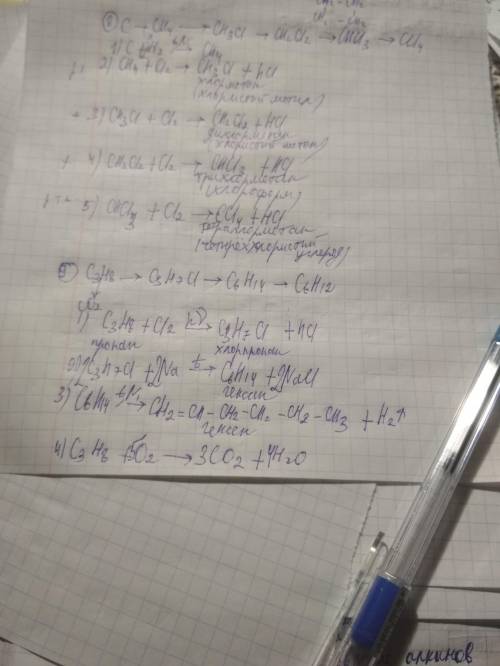 C → CH₄ → CH₃Cl → CH₂Cl₂ → CHCl₃ → CCl₄
1) C CH₄
2) CH₄ + Cl₂ → CH₃Cl + HCl
хлорметан
(хлористый метил)
+ 3) CH₃Cl + Cl₂ → CH₂Cl₂ + HCl
дихлорметан
(хлористый метилен)
+ 4) CH₂Cl₂ + Cl₂ → CHCl₃ + HCl
трихлорметан
(хлороформ)
5) CHCl₃ + Cl₂ → CCl₄ + HCl
тетрахлорметан
(четырёххлористый углерод)
C₃H₈ → C₃H₇Cl → C₆H₁₄ → C₆H₁₂
1) C₃H₈ + Cl₂ → C₃H₇Cl + HCl
пропан хлорпропан
2) C₃H₇Cl + 2Na → C₆H₁₄ + 2NaCl
гексан
3) C₆H₁₄ → CH₂=CH-CH₂-CH₂-CH₂-CH₃ + H₂↑
гексен
4) C₃H₈ + 5O₂ → 3CO₂ + 4H₂O
алкинов